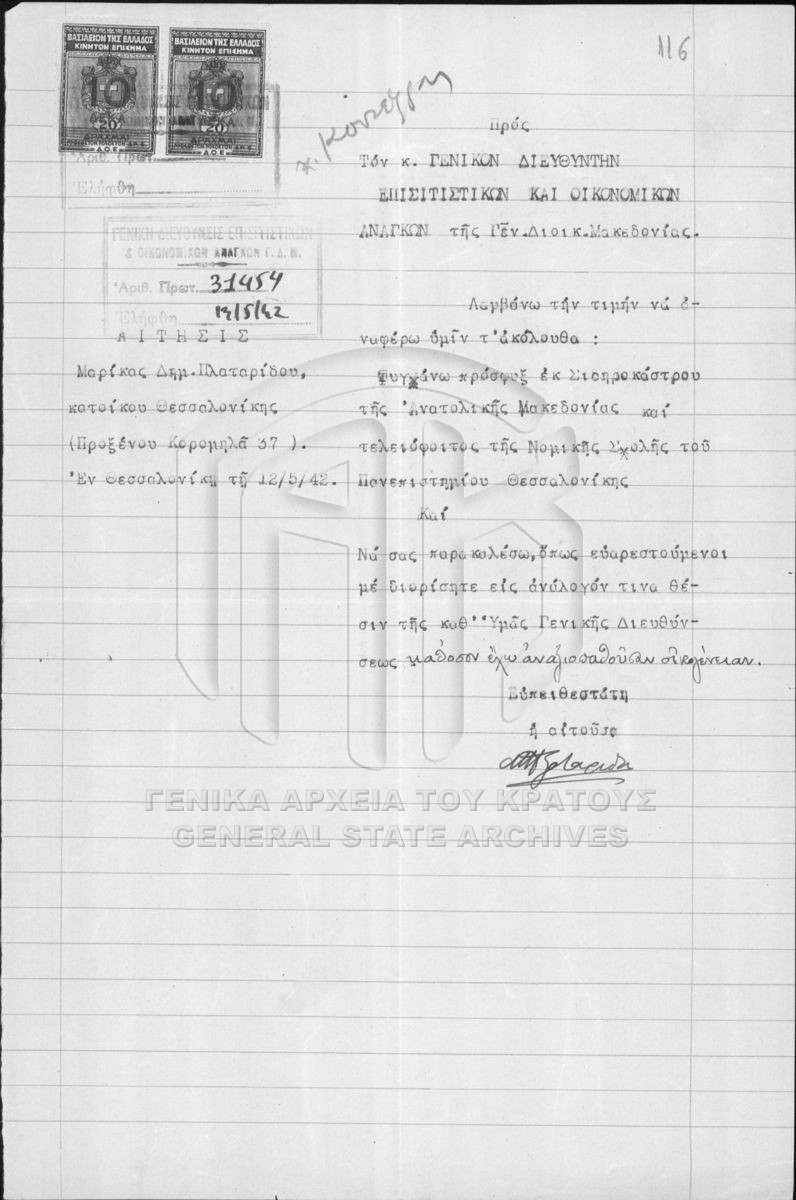 116
ΒΑΣΙΛΕΙΟΝ ΤΗΣ ΕΛΛΑΔΟΣ
ΚΙΝΗΤΟΝ ΕΠΙΣΗΜΑ
10
ΔΕΚΑ
20
ΔΡΑΧΜΑΙ
Δ.Ο.Ε.
ΒΑΣΙΛΕΙΟΝ ΤΗΣ ΕΛΛΑΔΟΣ
ΚΙΝΗΤΟΝ ΕΠΙΣΗΜΑ
10
ΔΕΚΑ
20
ΔΡΑΧΜΑΙ
Δ.Ο.Ε.
Ἀριθ. Πρωτ.
Ἐλήφθη
ΓΕΝΙΚΗ ΔΙΕΥΘΥΝΣΙΣ ΕΠΙΣΙΤΙΣΤΙΚΩΝ
& ΟΙΚΟΝΟΜΙΚΩΝ ΑΝΑΓΚΩΝ Γ. Δ. Μ.
Ἀριθ. Πρωτ. 31454
Ἐλήφθη 12/5/42
Α Ι Τ Η Σ Ι Σ
Μαρίκας Δημ.Πλαταρίδου,
κατοίκου Θεσσαλονίκης
(Προξένου Κορομηλᾶ 37 ).
Ἐν Θεσσαλονίκῃ τῇ 12/5/42.
Πρός
Τόν κ. ΓΕΝΙΚΟΝ ΔΙΕΥΘΥΝΤΗΝ
ΕΠΙΣΙΤΙΣΤΙΚΩΝ ΚΑΙ ΟΙΚΟΝΟΜΙΚΩΝ
ΑΝΑΓΚΩΝ τῆς Γεν.Διοικ.Μακεδονίας.
Λαμβάνω τήν τιμήν νά ἀ-
ναφέρω ὑμῖν τ'ἀκόλουθα :
Τυγχάνω πρόσφυξ ἐκ Σιδηροκάστρου
τῆς Ἀνατολικῆς Μακεδονίας καί
τελειόφοιτος τῆς Νομικῆς Σχολῆς τοῦ
Πανεπιστημίου Θεσσαλονίκης
Καί
Νά σας παρακαλέσω,ὅπως εὐαρεστούμενοι
μέ διορίσητε εἰς ἀνάλογόν τινα θέ-
σιν τῆς καθ'Ὑμᾶς Γενικῆς Διευθύν-
σεως καθόσον ἔχω ἀναξιοπαθοῦσαν οἰκογένειαν.
Εὐπειθεστάτη
ἡ αἰτοῦσα
ΓΕΝΙΚΑ ΑΡΧΕΙΑ ΤΟΥ ΚΡΑΤΟΥΣ
GENERAL STATE ARCHIVES